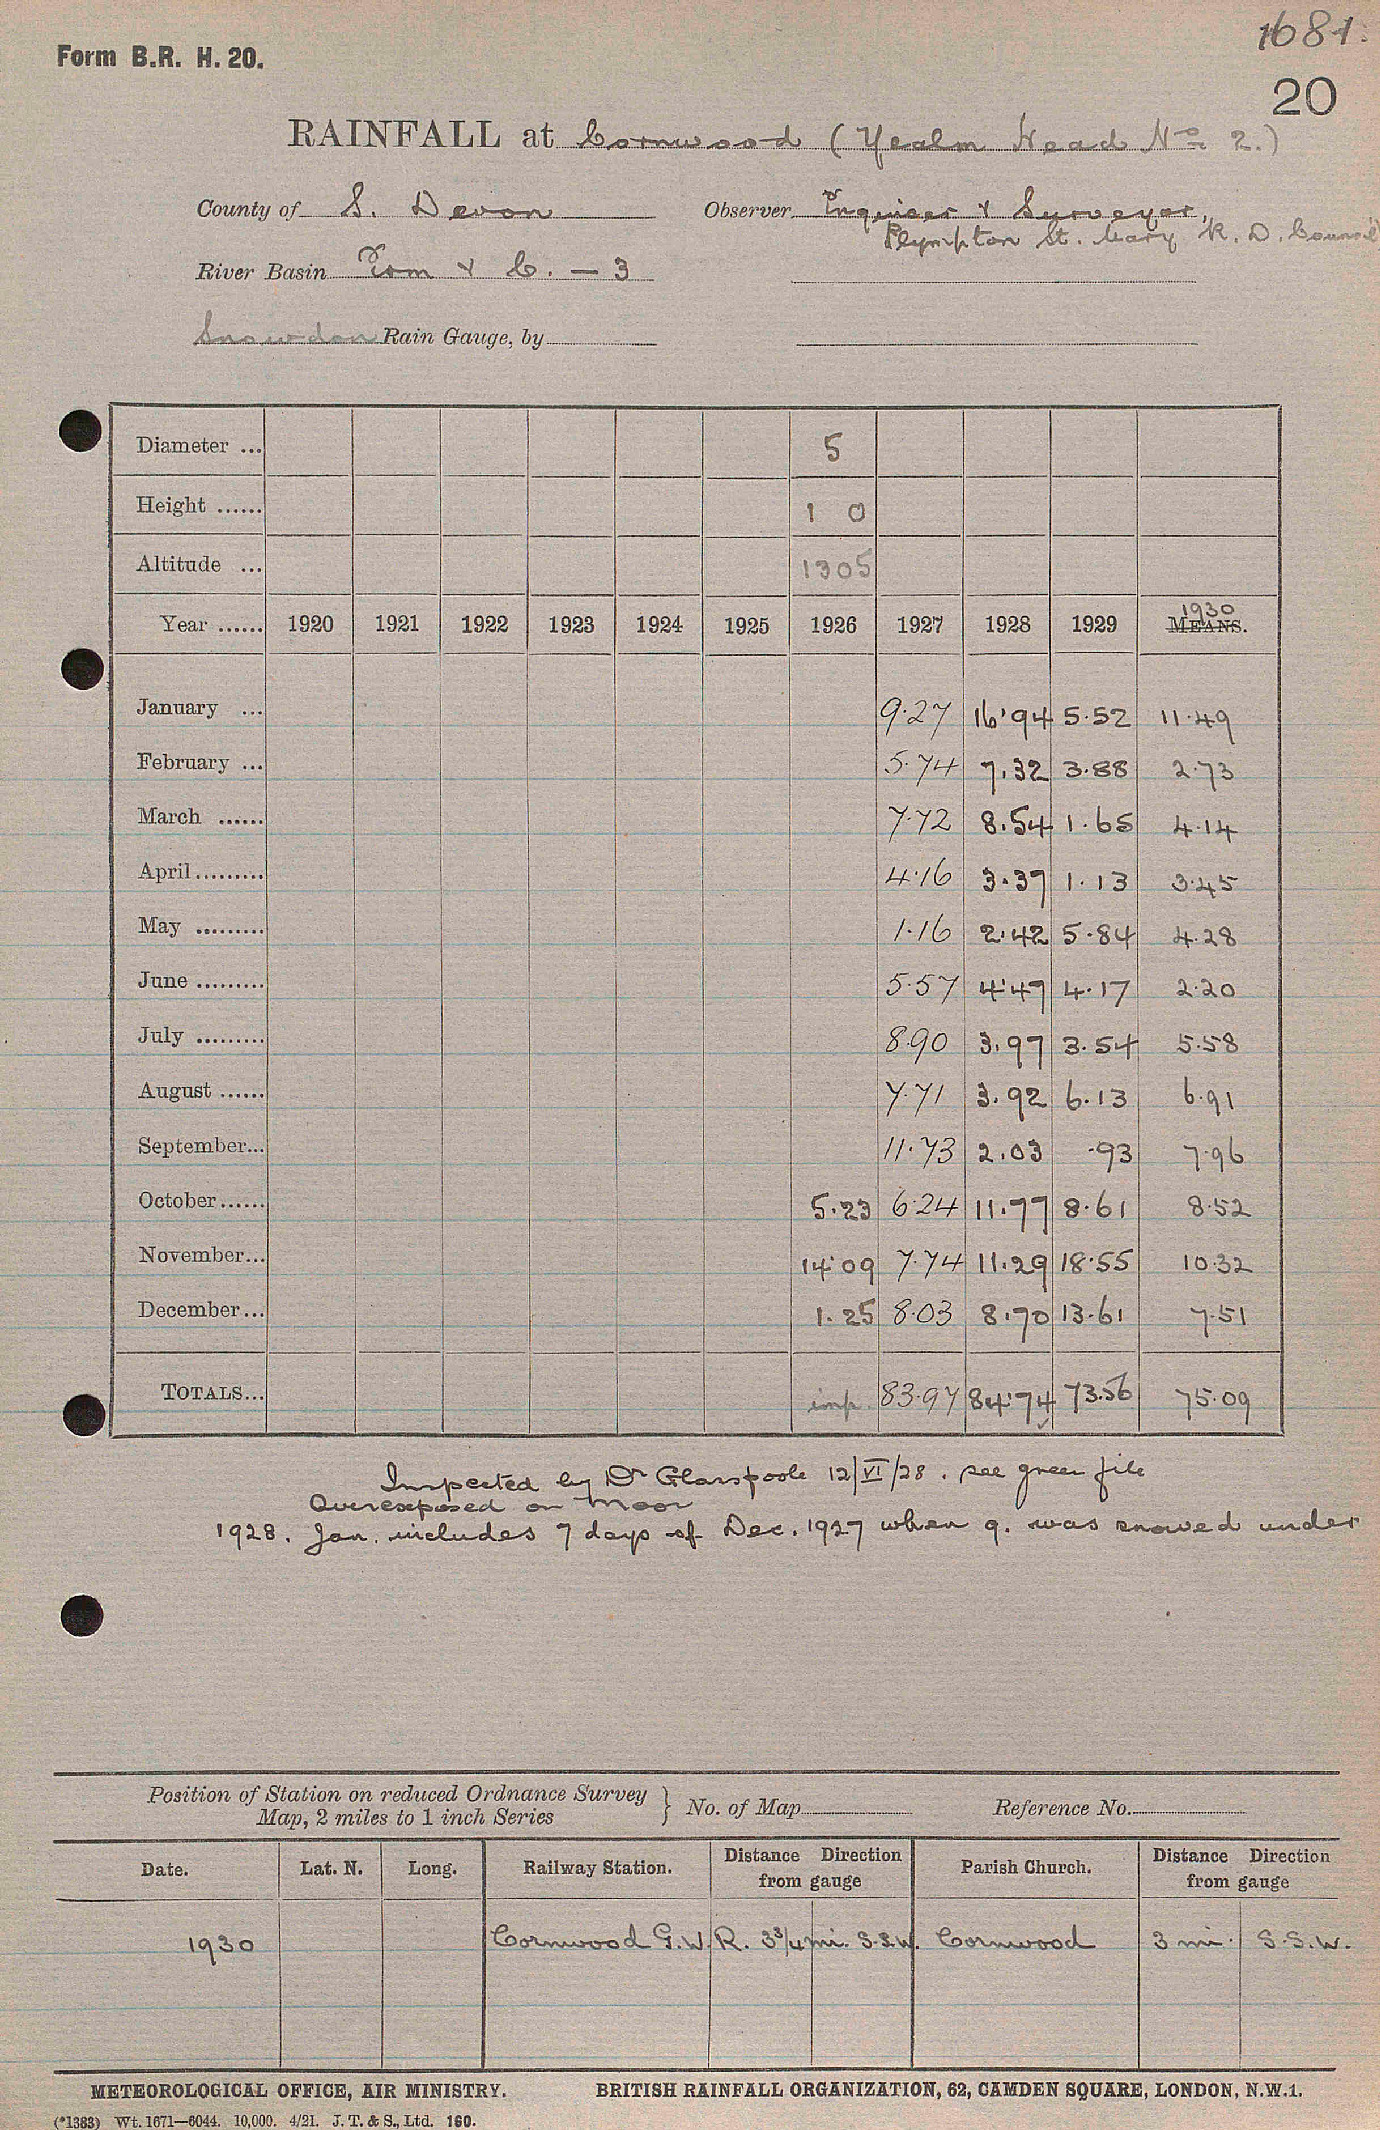 1681.
Form B.R. H. 20.
20
RAINFALL at Cornwood (Yealm Head No 2.)
County of S. Devon Observer Engineer & Surveyor,
Plympton St. Mary R. D. Council
River Basin Erm & C. — 3
Snowdon Rain Gauge, by
Diameter ... 5
Height ...... 1 0
Altitude ... 1305
1930
Year ...... 1920 1921 1922 1923 1924 1925 1926 1927 1928 1929 MEANS.
January ... 9.27 16.94 5.52 11.49
February ... 5.74 7.32 3.88 2.73
March ...... 7.72 8.54 1.65 4.14
April ......... 4.16 3.37 1.13 3.45
May ......... 1.16 2.42 5.84 4.28
June ......... 5.57 4.47 4.17 2.20
July ......... 8.90 3.97 3.54 5.58
August ...... 7.71 3.92 6.13 6.91
September... 11.73 2.03 .93 7.96
October ...... 5.23 6.24 11.77 8.61 8.52
November... 14.09 7.74 11.29 18.55 10.32
December... 1.25 8.03 8.70 13.61 7.51
TOTALS... imp. 83.97 84.74 73.56 75.09
Inspected by Dr Glasspoole 12/VI/28. see green file
Overexposed on Moor
1928. Jan. includes 7 days of Dec. 1927 when g. was snowed under
Position of Station on reduced Ordnance Survey
Map, 2 miles to 1 inch Series } No. of Map Reference No.
Date. Lat. N. Long. Railway Station. Distance Direction from gauge Parish Church. Distance Direction from gauge
1930 Cornwood G.W.R. 3 3/4 mi. S.S.W. Cornwood 3 mi. S.S.W.
METEOROLOGICAL OFFICE, AIR MINISTRY. BRITISH RAINFALL ORGANIZATION, 62, CAMDEN SQUARE, LONDON, N.W.1.
(*1383) Wt. 1671—6044. 10,000. 4/21. J. T. & S., Ltd. 160.